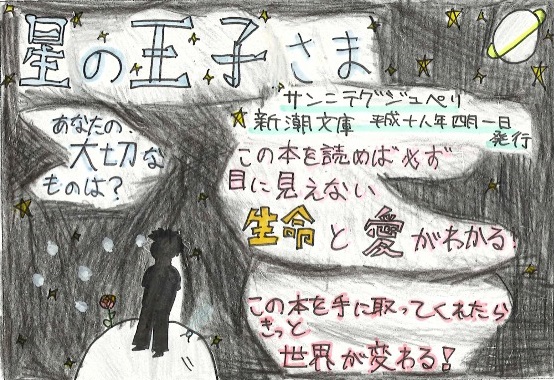 星の王子さま
サン=テグジュペリ
新潮文庫 平成十八年四月一日
発行
あなたの、
大切な
ものは?
この本を読めば必ず
目に見えない
生命と愛がわかる!
この本を手に取ってくれたら
きっと
世界が変わる!